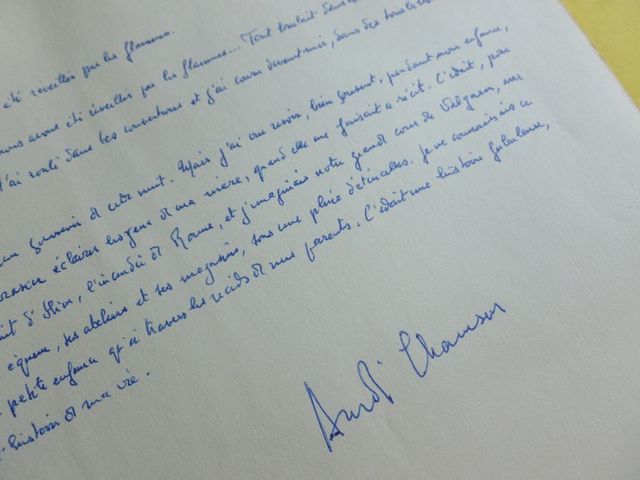 été réveillés par les flammes.
avons été réveillés par les flammes... Tout brûlait dans
l'ai roulé dans les couvertures et j'ai couru devant moi, dans des
souvenir de cette nuit. Mais j'ai cru revoir, bien souvent, pendant mon enfance,
éclairer les yeux de ma mère, quand elle me faisait ce récit. C'était, pour
d'Ilion, l'incendie de Rome, et j'imaginais notre grand cour de Valgran, une
équerre, ses ateliers et ses magasins, sous une pluie d'étincelles. Je ne connaissais
petite enfance qu'à travers les récits de mes parents. C'était une histoire fabuleuse,
histoire de ma vie.
André Chamson